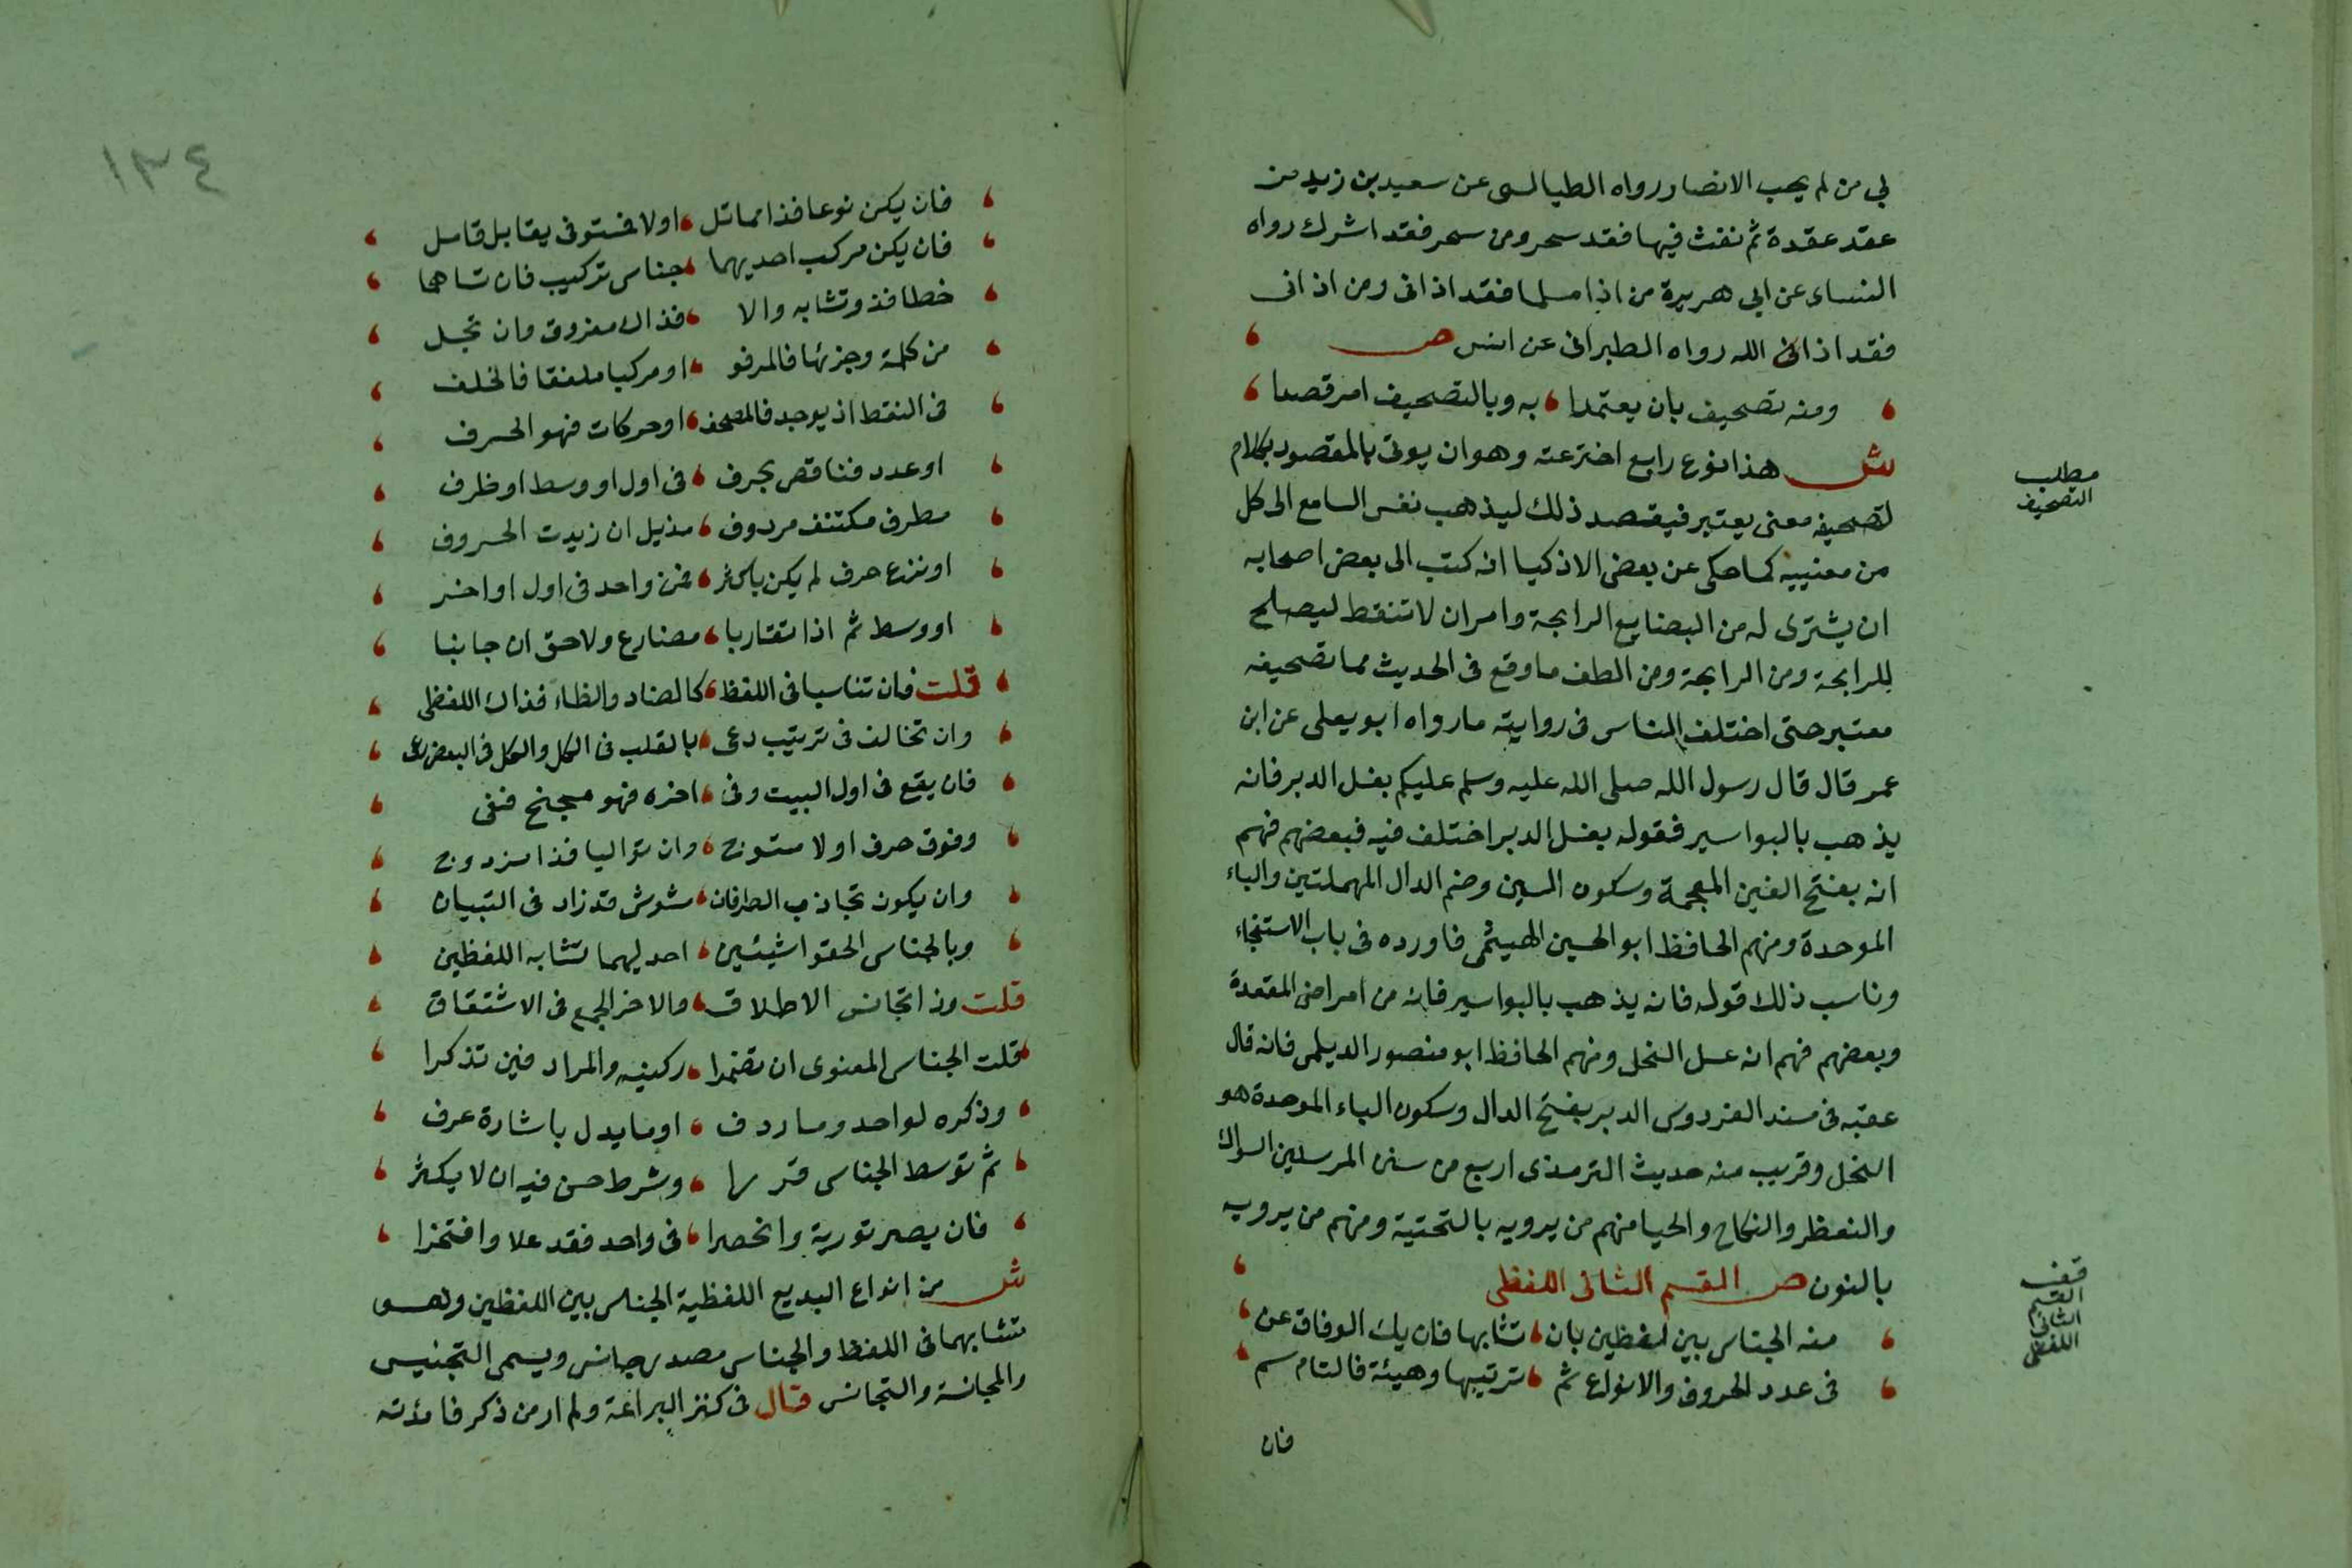 لي من لم يحب الانصار رواه الطيالسى عن سعيد بن زيد من
عقد عقدة ثم نفث فيها فقد سحر ومن سحر فقد اشرك رواه
النساى عن ابى هريرة من اذا مسلما فقد اذانى ومن اذانى
فقد اذانى الله رواه الطبرانى عن انس ص
ومنه تصحيف بان يعتمدا ، به وبالتصحيف امر قصدا
ش هذا نوع رابع اخترعته وهو ان يوتى بالمقصود بكلام
لتصحيفه معنى يعتبر فيقصد ذلك ليذهب نفس السامع الى كل
من معنييه كما حكى عن بعض الاذكيا انه كتب الى بعض اصحابه
ان يشترى له من البضايع الرابحة وامر ان لا تنقط ليصلح
للرابحة ومن الرايجة ومن الطف ما وقع فى الحديث مما تصحيفه
معتبر حتى اختلف الناس فى روايته ما رواه ابو يعلى عن ابن
عمر قال قال رسول الله صلى الله عليه وسلم عليكم بغسل الدبر فانه
يذهب بالبواسير فقوله بغسل الدبر اختلف فيه فبعضهم فهم
انه بفتح الغين المعجمة وسكون السين وضم الدال المهملتين والباء
الموحدة ومنهم الحافظ ابو الحسين الهيثمى فاورده فى باب الاستنجاء
وناسب ذلك قوله فانه يذهب بالبواسير فانه من امراض المقعدة
وبعضهم فهم انه عسل النحل ومنهم الحافظ ابو منصور الديلمى فانه قال
عقبه فى مسند الفردوس الدبر بفتح الدال وسكون الباء الموحدة هو
النحل وقريب منه حديث الترمذى اربع من سنن المرسلين السواك
والتعطر والنكاح والحيا منهم من يرويه بالتحتية ومنهم من يرويه
بالنون ص القسم الثانى اللفظى
منه الجناس بين لفظين بان ، تشابها فان يك الوفاق عن
فى عدد الحروف والانواع ثم ، ترتيبها وهيئة فالتام سم
فان
مطلب
التصحيف
قف
القسم
الثانى
اللفظى
١٣٤
فان يكن نوعا فذا مماثل ، اولا فمستوفى يقابل قاسل
فان يكن مركب احديهما ، جناس تركيب فان تساهما
خطا فذو تشابه والا ، فذاك مفروق وان تجل
من كلمة وجزئها فالمرفو ، او مركبا ملفقا فالخلف
فى النقط اذ يوجد فالمصحف ، او حركات فهو المحرف
او عدد فناقص بحرف ، فى اول او وسط او ظرف
مطرف مكتنف مردوف ، مذيل ان زيدت الحروف
او نزع حرف لم يكن باكثر ، من واحد فى اول او اخر
او وسط ثم اذا تقاربا ، مضارع ولاحق ان جانبا
قلت فان تناسبا فى اللفظ ، كالضاد والظاء فذاك اللفظى
وان تخالف فى ترتيب دعى ، بالقلب فى الكل والكل فى البعض رعى
فان يقع فى اول البيت وفى ، اخره فهو مجنح قفى
وفوق حرف اولا متوج ، وان تواليا فذا مزدوج
وان يكون تجاذب الطرفان ، مشوش قد زاد فى التبيان
وبالجناس الحقوا شيئين ، احديهما تشابه اللفظين
قلت وذا تجانس الاطلاق ، والاخر الجمع فى الاشتقاق
قلت الجناس المعنوى ان تضمرا ، ركنيه والمراد فين تذكرا
وذكره لواحد وما ردف ، او ما يدل باشارة عرف
ثم توسط الجناس قد ، وشرط حسن فيه ان لا يكثر
فان يصير تورية وانحصرا ، فى واحد فقد علا وافتخرا
ش من انواع البديع اللفظية الجناس بين اللفظين وهو
تشابهما فى اللفظ والجناس مصدر جانس ويسمى التجنيس
والمجانسة والتجانس قال فى كنز البراعة ولم ار من ذكر فائدته